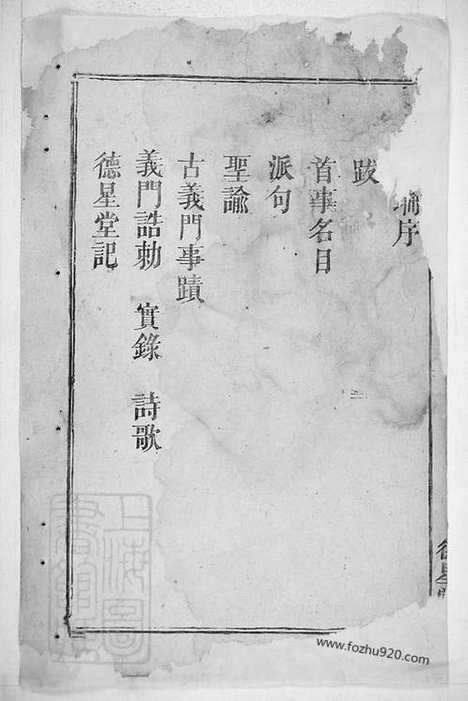 序
跋
首事名目
派句
聖諭
古義門事蹟
義門誥勅 實錄 詩歌
德星堂記
上海圖書館藏
www.fozhu920.com